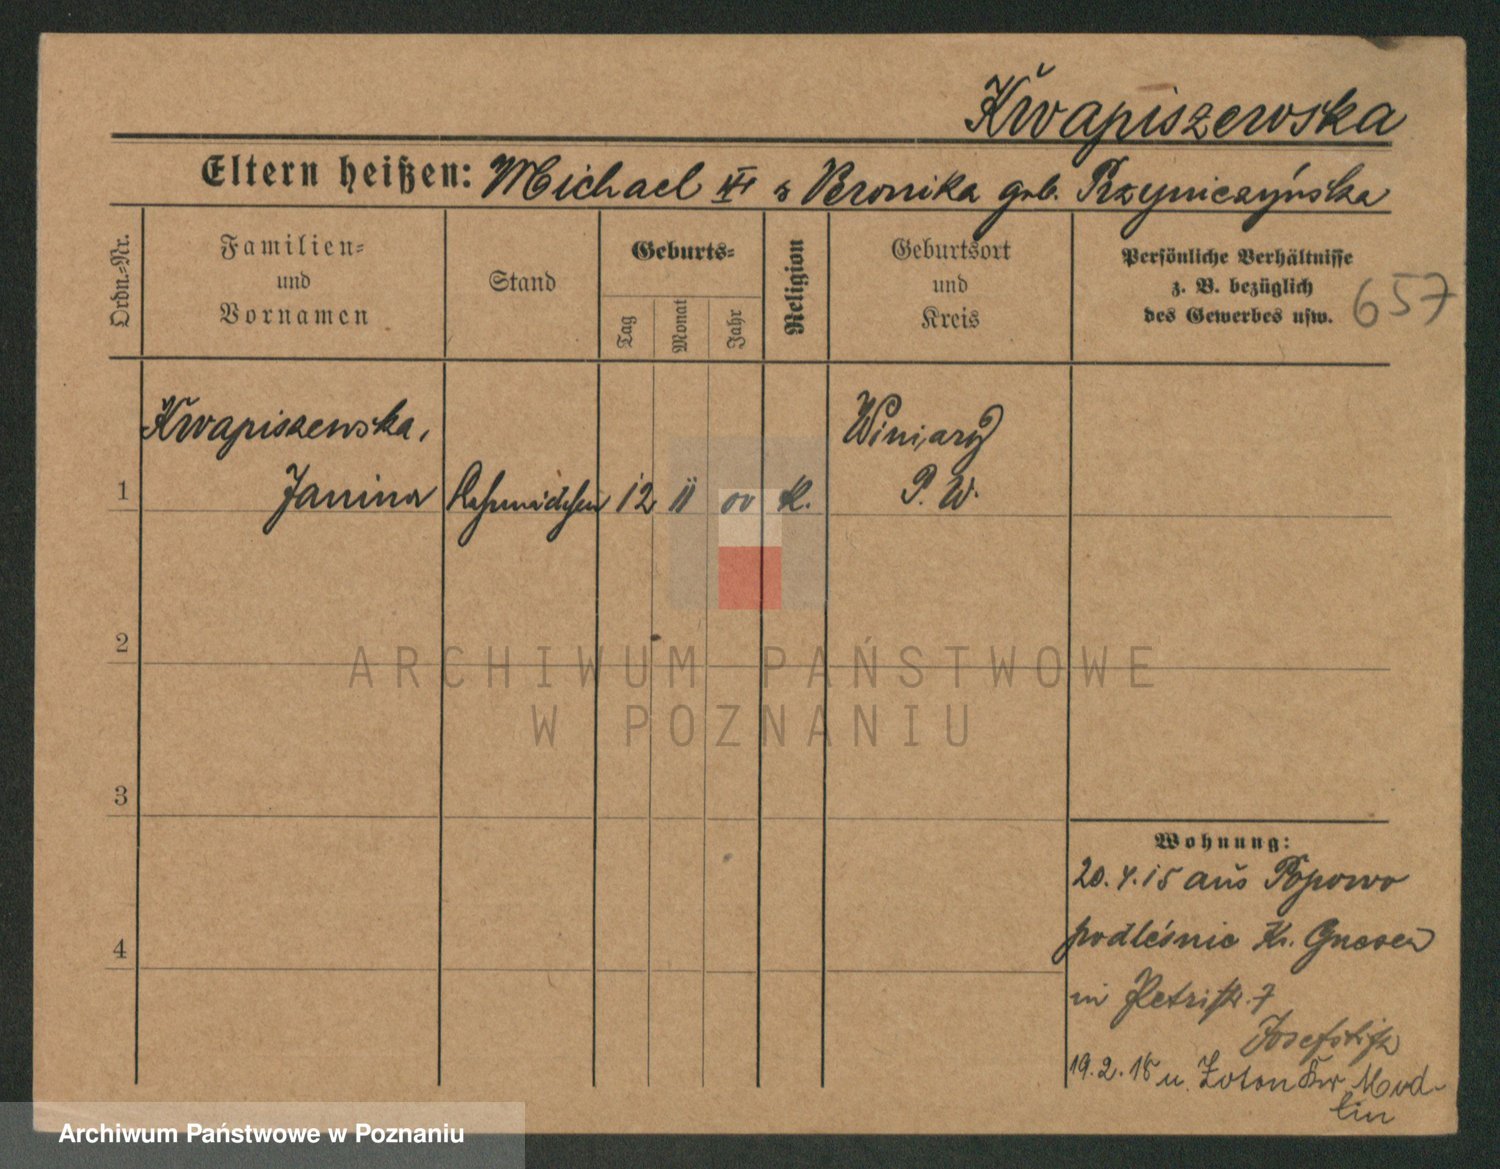 Kwapiszewska
Eltern heißen: Michael & Veronika geb. Przyniczyńska
Ordn.-Nr.
Familien-
und
Vornamen
Stand
Geburts-
Tag
Monat
Jahr
Religion
Geburtsort
und
Kreis
Persönliche Verhältnisse
z. B. bezüglich
des Gewerbes usw.
657
Kwapiszewska,
Winiary
1 Janina 12 II 00 K. P. W.
2
3
4
Wohnung:
20.4.15 aus Popowo
podleśnie Kr. Gnesen
in Petristr. 7
Josefstift
19.2.18 n. Kr. Modlin
ARCHIWUM PAŃSTWOWE
W POZNANIU
Archiwum Państwowe w Poznaniu